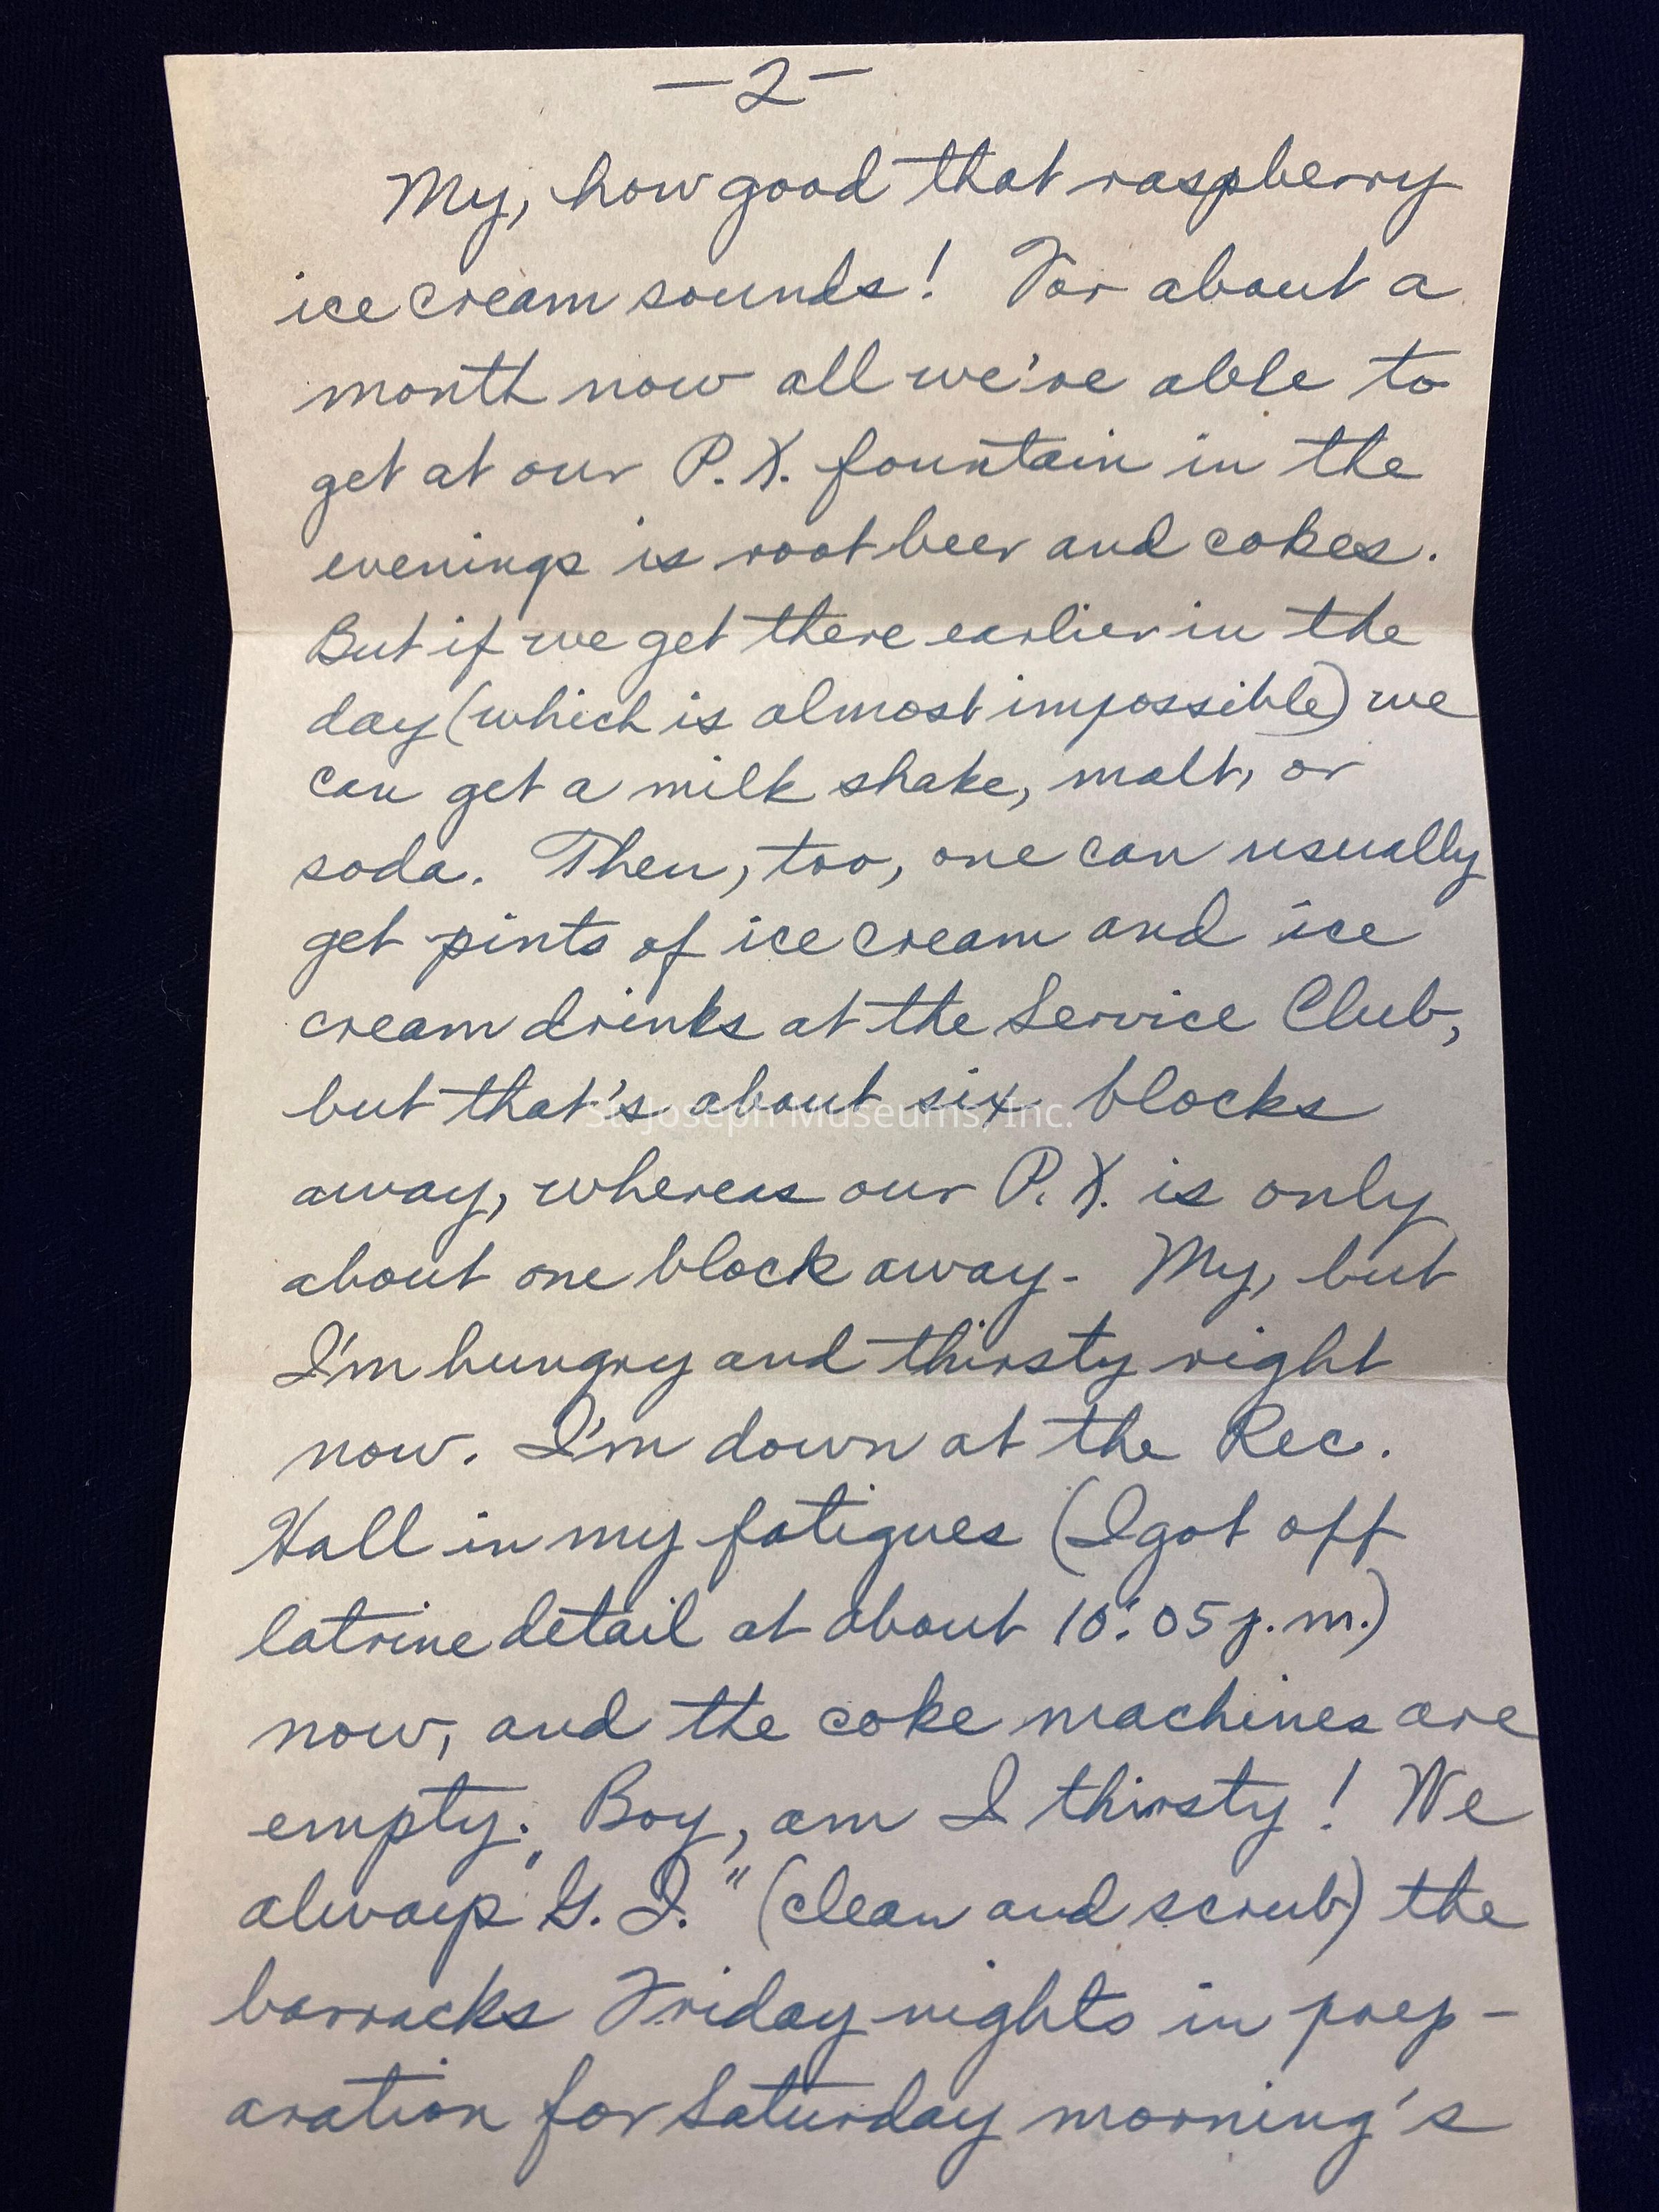 -2-
My, how good that raspberry
ice cream sounds! For about a
month now all we're able to
get at our P.X. fountain in the
evenings is root beer and cokes.
But if we get there earlier in the
day (which is almost impossible) we
can get a milk shake, malt, or
soda. Then, too, one can usually
get pints of ice cream and ice
cream drinks at the Service Club,
but that's about six blocks
St. Joseph Museums, Inc.
away, whereas our P.X. is only
about one block away. My, but
I'm hungry and thirsty right
now. I'm down at the Rec.
Hall in my fatigues (I got off
latrine detail at about 10:05 p.m.)
now, and the coke machines are
empty. Boy, am I thirsty! We
always "G.I." (clean and scrub) the
barracks Friday nights in prep-
aration for Saturday morning's